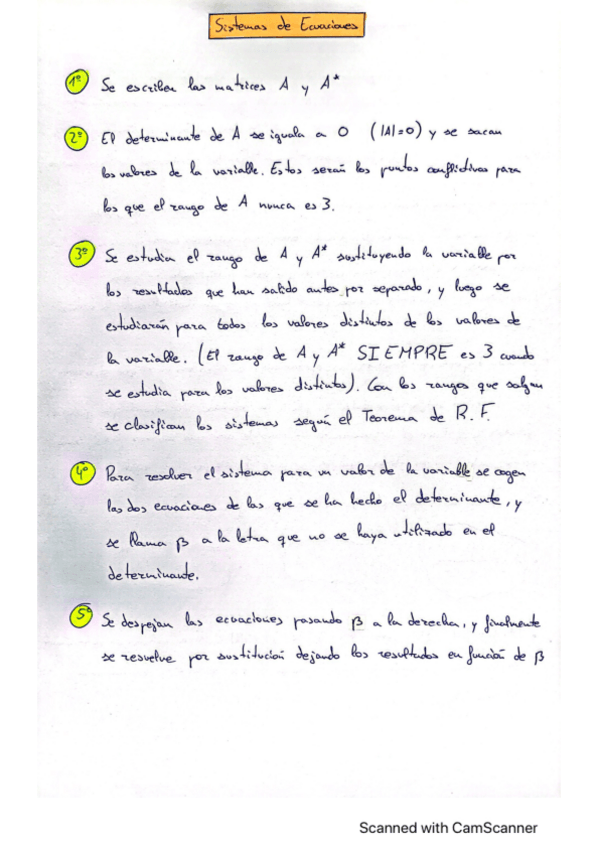 Sistemas de Ecuaciones
1º Se escriben las matrices A y A*
2º El determinante de A se iguala a 0 (|A|=0) y se sacan
los valores de la variable. Estos serán los puntos conflictivos para
los que el rango de A nunca es 3.
3º Se estudia el rango de A y A* sustituyendo la variable por
los resultados que han salido antes por separado, y luego se
estudiarán para todos los valores distintos de los valores de
la variable. (El rango de A y A* SIEMPRE es 3 cuando
se estudia para los valores distintos). Con los rangos que salgan
se clasifican los sistemas según el Teorema de R.F.
4º Para resolver el sistema para un valor de la variable se cogen
las dos ecuaciones de las que se ha hecho el determinante, y
se llama β a la letra que no se haya utilizado en el
determinante.
5º Se despejan las ecuaciones pasando β a la derecha, y finalmente
se resuelve por sustitución dejando los resultados en función de β
Scanned with CamScanner